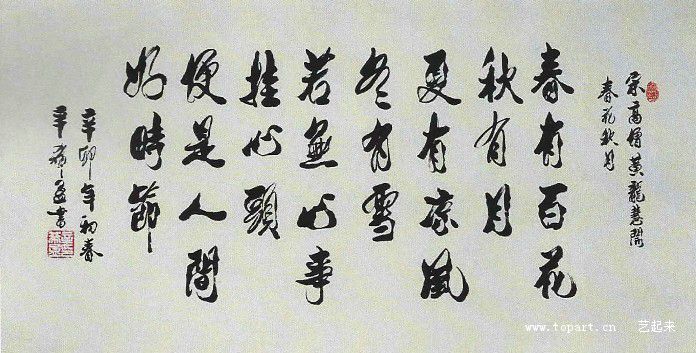 宋高僧黄龍慧開
春花秋月
春有百花
秋有月
夏有凉風
冬有雪
若無心事
挂心頭
便是人間
好時節
辛卯年初春
書
www.topart.cn 艺起来